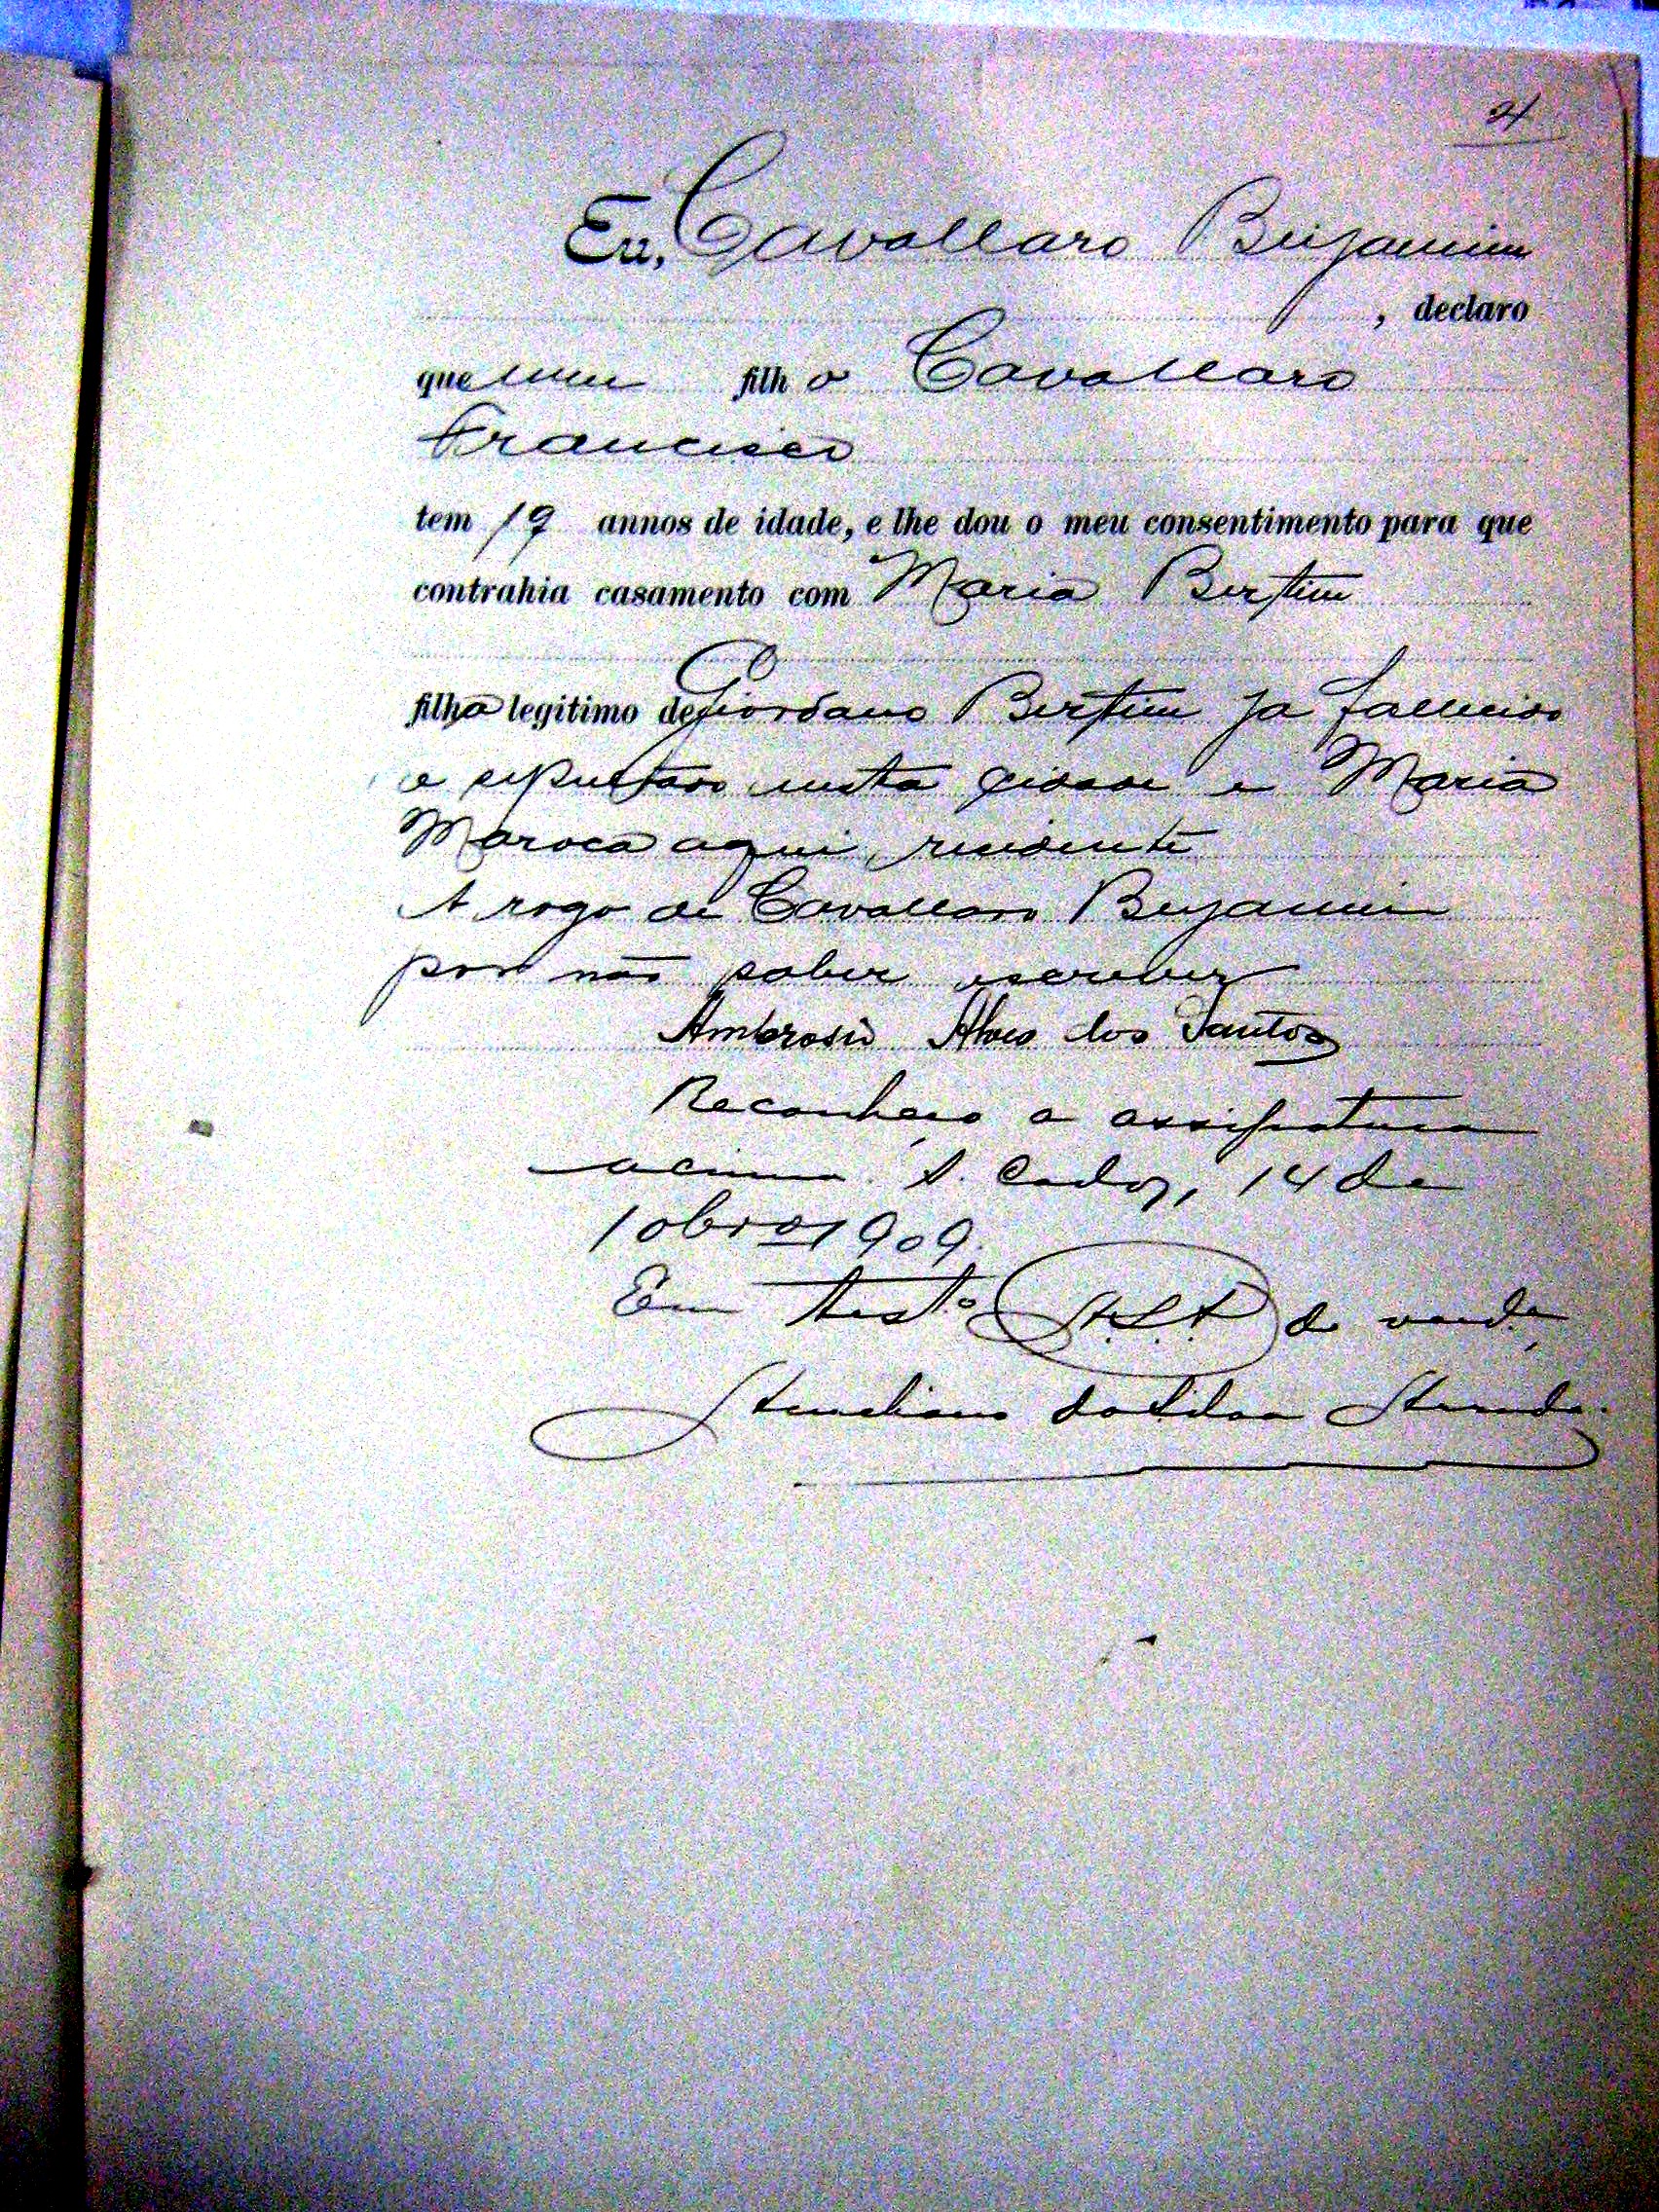 4
Eu, Cavallaro Benjamim
, declaro
que meu filho Cavallaro
Francisco
tem 19 annos de idade, e lhe dou o meu consentimento para que
contrahia casamento com Maria Bertim
filha legitimo de Giordano Bertim ja fallecido
e sepultado nesta cidade e Maria
Maroca aqui residente
A rogo de Cavallaro Benjamim
por não saber escrever
Ambrosio Alves dos Santos
Reconheço a assignatura
acima. S. Carlos, 14 de
10bro 1909.
Em testo de verde
da Silva